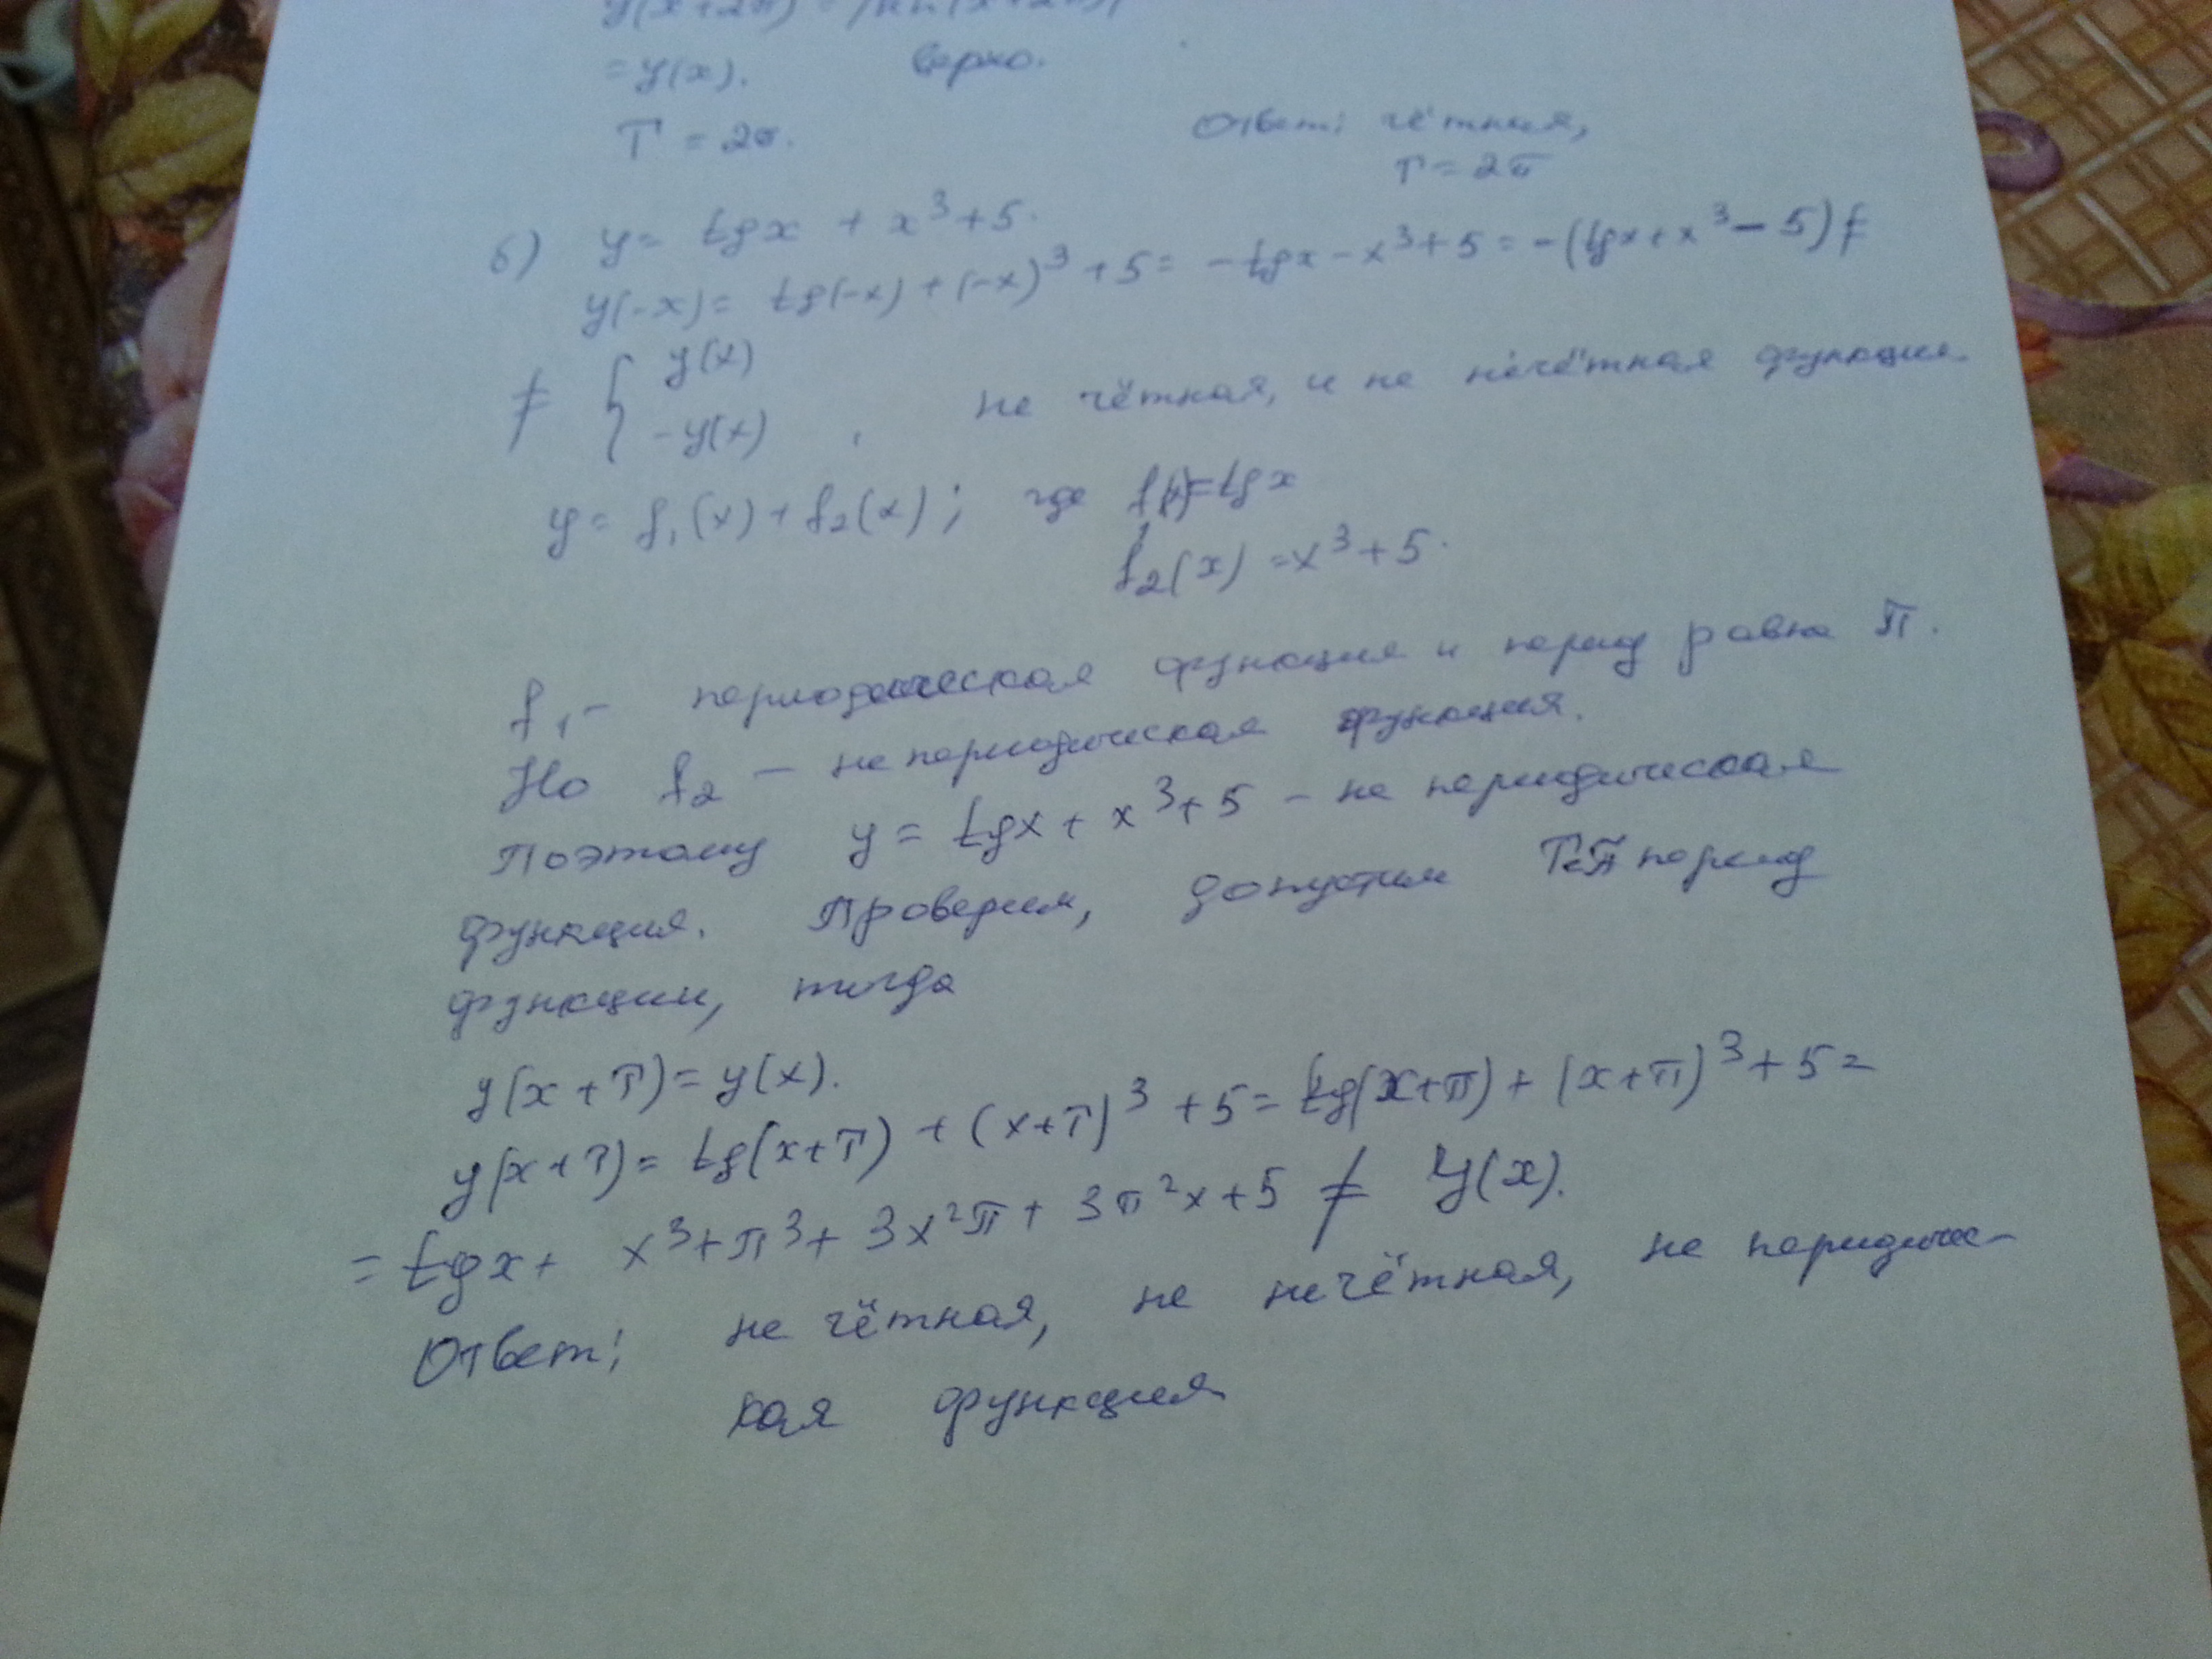 = y(x). верно.
T = 2π.
Ответ: чётная,
T = 2π
б) y = tgx + x³+5.
y(-x) = tg(-x) + (-x)³ + 5 = -tgx - x³ + 5 = -(tgx + x³ - 5) ≠
≠ { y(x)
-y(x) , не чётная, и не нечётная функция.
y = f₁(x) + f₂(x); где f₁(x) = tgx
f₂(x) = x³ + 5.
f₁ - периодическая функция и период равна π.
Но f₂ - не периодическая функция.
Поэтому y = tgx + x³ + 5 - не периодическая
функция. Проверим, допустим T=π период
функции, тогда
y(x + T) = y(x).
y(x+T) = tg(x+T) + (x+T)³ + 5 = tg(x+π) + (x+π)³ + 5 =
= tgx + x³ + π³ + 3x²π + 3π²x + 5 ≠ y(x).
Ответ: не чётная, не нечётная, не периодичес-
кая функция